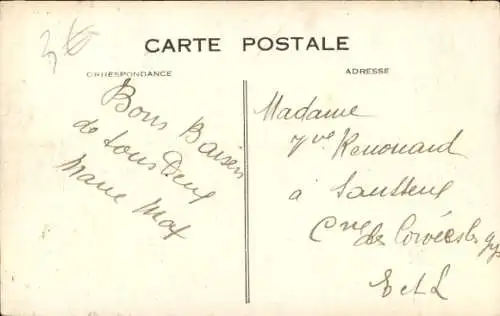 CARTE POSTALE
CORRESPONDANCE
ADRESSE
Bons Baisers
de tous Deux
Marie Max
Madame
Vve Renouard
à
Cne des Corvées les Yys
E et L